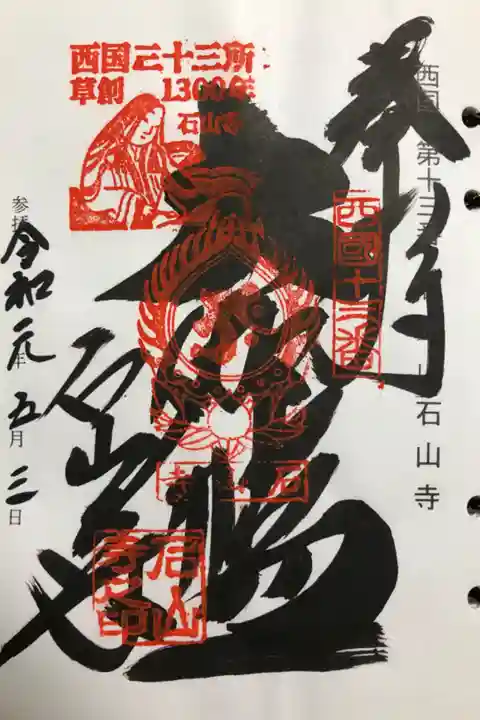 西国 第十三番
石山寺
奉拝
西國十三番
大伽藍
石山寺
西国三十三所
草創 1300年
石山寺
石山寺
石山寺之印
参拝
令和元年五月三日